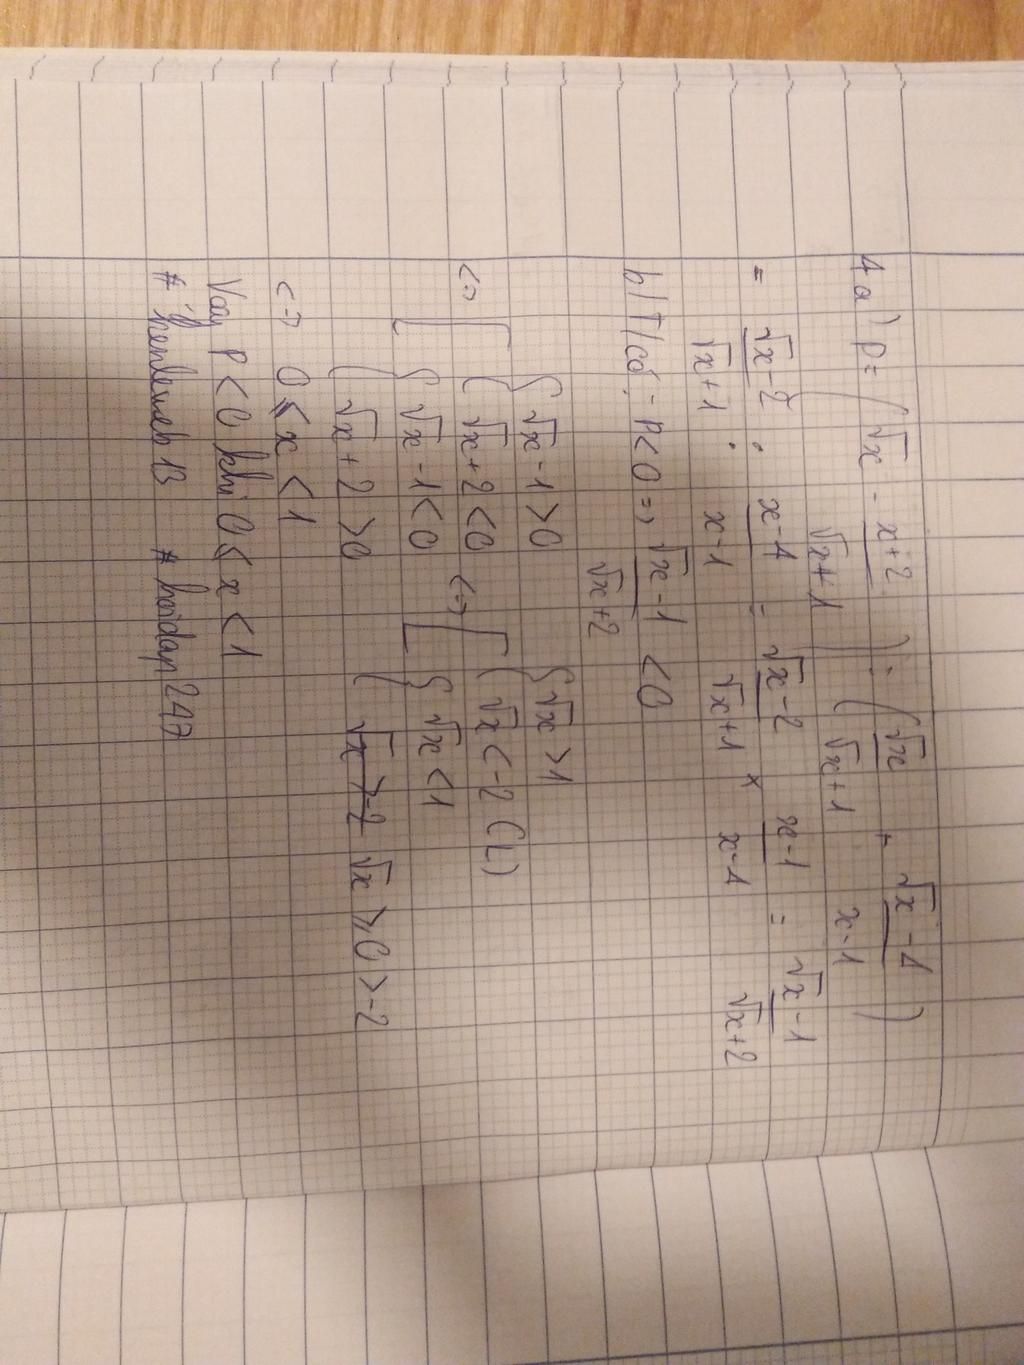 4 a) P = (√x - x+2/√x+1) : (√x/√x+1 + √x-4/x-1)
= √x-2/√x+1 : x-4/x-1 = √x-2/√x+1 × x-1/x-4 = √x-1/√x+2
b) T/có: P<0 => √x-1/√x+2 < 0
<=> [ { √x-1>0 <=> [ { √x>1
{ √x+2<0 { √x<-2 (L)
{ √x-1<0 { √x<1
{ √x+2>0 { √x>-2 √x ⩾0>-2
<=> 0⩽x<1
Vậy P<0 khi 0⩽x<1
# # hoidap247